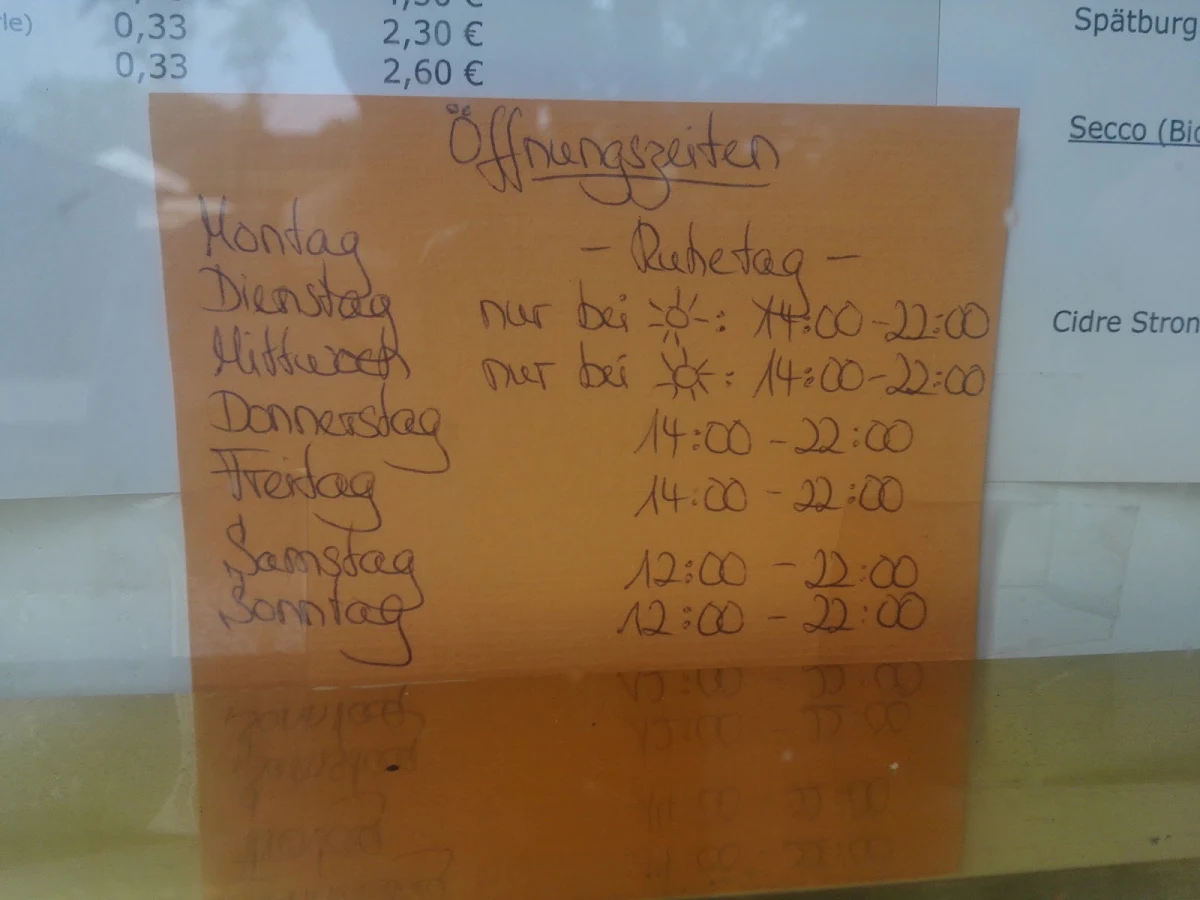 0,33 2,30 € Spätburg
0,33 2,60 €
Secco (Bio
Öffnungszeiten
Montag - Ruhetag -
Dienstag nur bei ☀: 14:00-22:00
Cidre Stron
Mittwoch nur bei ☀: 14:00-22:00
Donnerstag 14:00 - 22:00
Freitag 14:00 - 22:00
Samstag 12:00 - 22:00
Sonntag 12:00 - 22:00